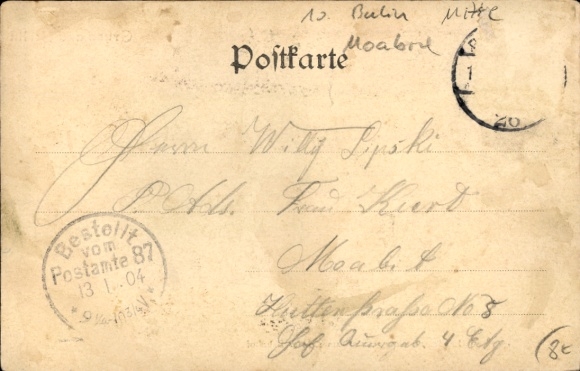 10. Berlin Mitte
Moabit
Postkarte
1
20
Herrn Willy Lipski
P. Adr. Frau Kurt
Moabit
Huttenstraße No 8
Hof. Quergeb. 4 Etg.
Bestellt
vom
Postamte 87
13 1. 04
8€